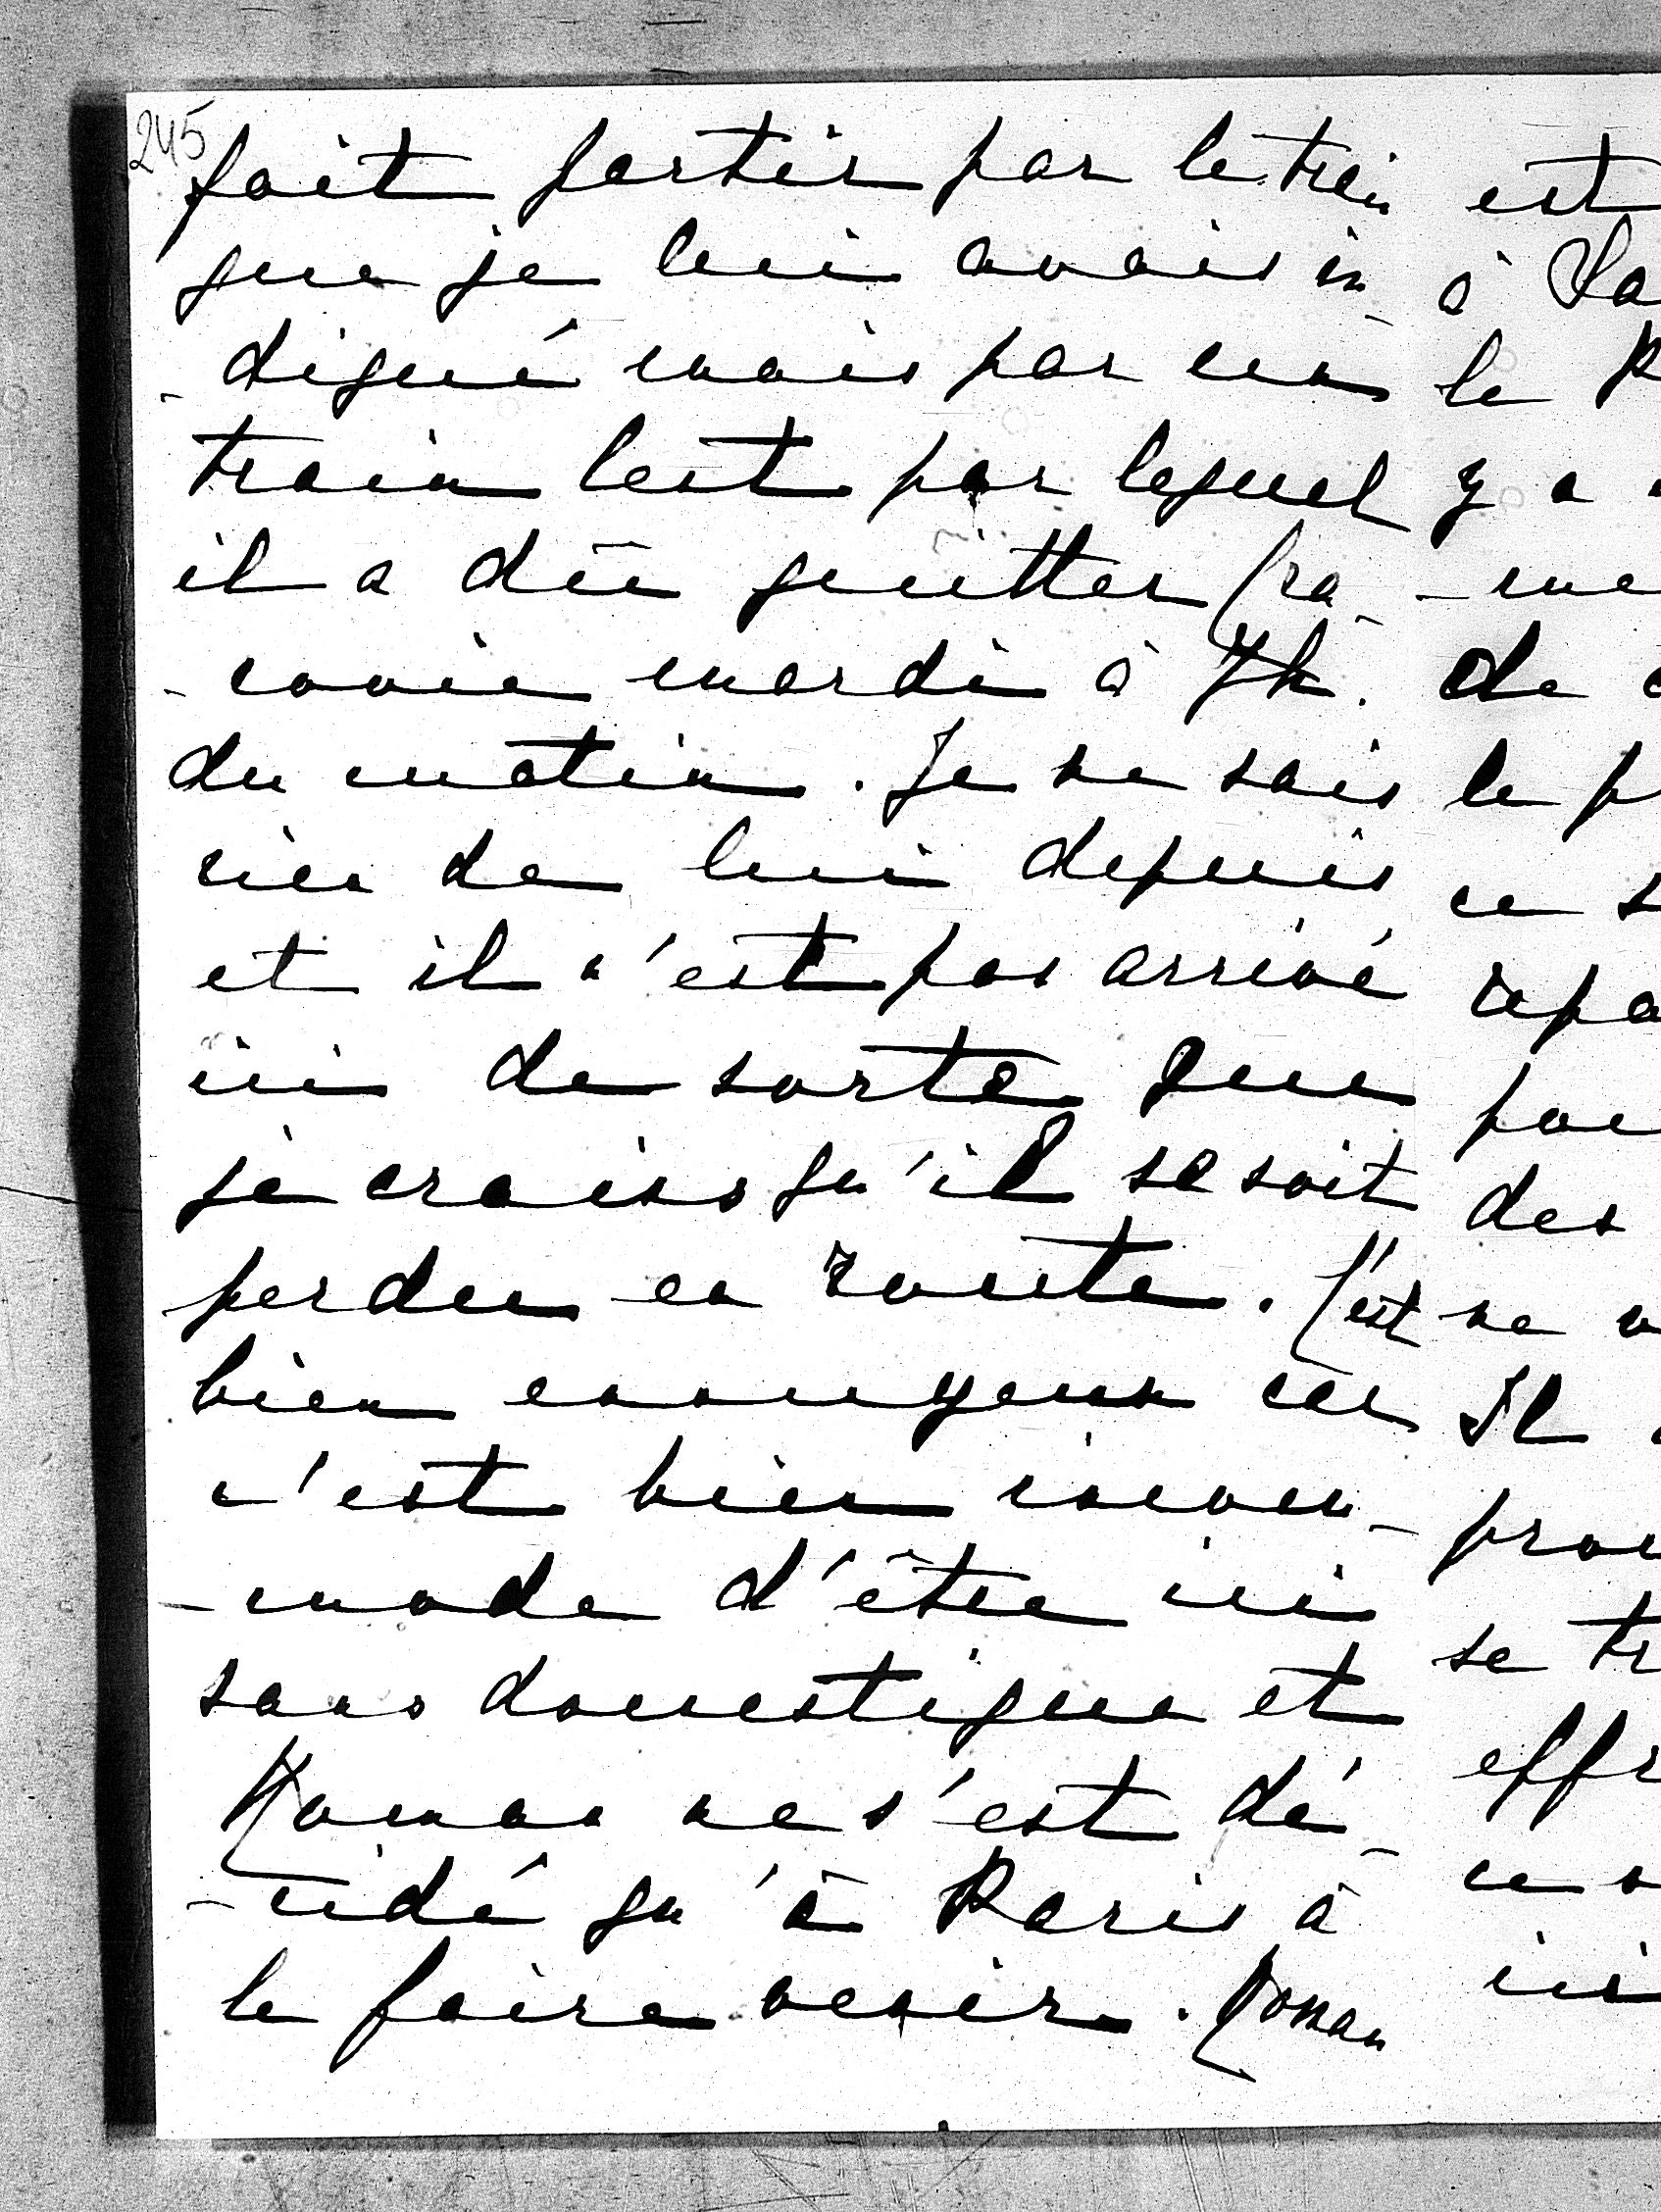 245
fait partir par le train
que je lui avais in-
-diqué mais par un
train lent par lequel
il a dû quitter Cra-
-covie mardi à 7h.
du matin. Je ne sais
rien de lui depuis
et il n'est pas arrivé
ici de sorte que
je crains qu'il se soit
perdu en route. C'est
bien ennuyeux car
c'est bien incom-
-mode d'être ici
sans domestique et
Roman ne s'est dé-
-cidé qu'à Paris à
le faire venir. Roman
est
à
le
y a
de
le
ce
des
ne
Il
se
ici